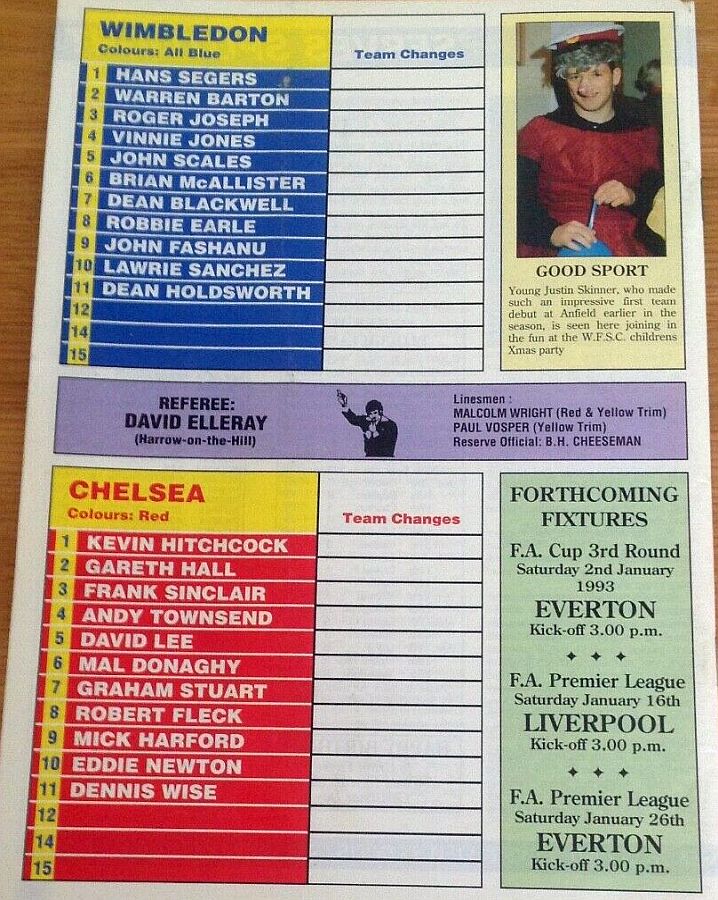 WIMBLEDON
Colours: All Blue
Team Changes
1 HANS SEGERS
2 WARREN BARTON
3 ROGER JOSEPH
4 VINNIE JONES
5 JOHN SCALES
6 BRIAN McALLISTER
7 DEAN BLACKWELL
8 ROBBIE EARLE
9 JOHN FASHANU
10 LAWRIE SANCHEZ
11 DEAN HOLDSWORTH
12
14
15
GOOD SPORT
Young Justin Skinner, who made
such an impressive first team
debut at Anfield earlier in the
season, is seen here joining in
the fun at the W.F.S.C. childrens
Xmas party
REFEREE:
DAVID ELLERAY
(Harrow-on-the-Hill)
Linesmen :
MALCOLM WRIGHT (Red & Yellow Trim)
PAUL VOSPER (Yellow Trim)
Reserve Official: B.H. CHEESEMAN
CHELSEA
Colours: Red
Team Changes
1 KEVIN HITCHCOCK
2 GARETH HALL
3 FRANK SINCLAIR
4 ANDY TOWNSEND
5 DAVID LEE
6 MAL DONAGHY
7 GRAHAM STUART
8 ROBERT FLECK
9 MICK HARFORD
10 EDDIE NEWTON
11 DENNIS WISE
12
14
15
FORTHCOMING
FIXTURES
F.A. Cup 3rd Round
Saturday 2nd January
1993
EVERTON
Kick-off 3.00 p.m.
F.A. Premier League
Saturday January 16th
LIVERPOOL
Kick-off 3.00 p.m.
F.A. Premier League
Saturday January 26th
EVERTON
Kick-off 3.00 p.m.